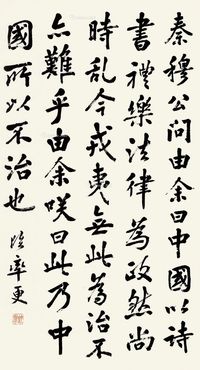 秦穆公問由余曰中國以詩
書禮樂法律為政然尚
時乱今戎夷無此為治不
亦難乎由余咲曰此乃中
國所以不治也 臨率更